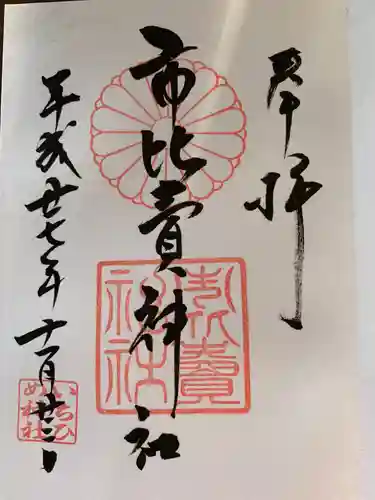 奉拝
市比賣神社
平成廿七年十一月廿二日
市比賣神社
いちひめ神社